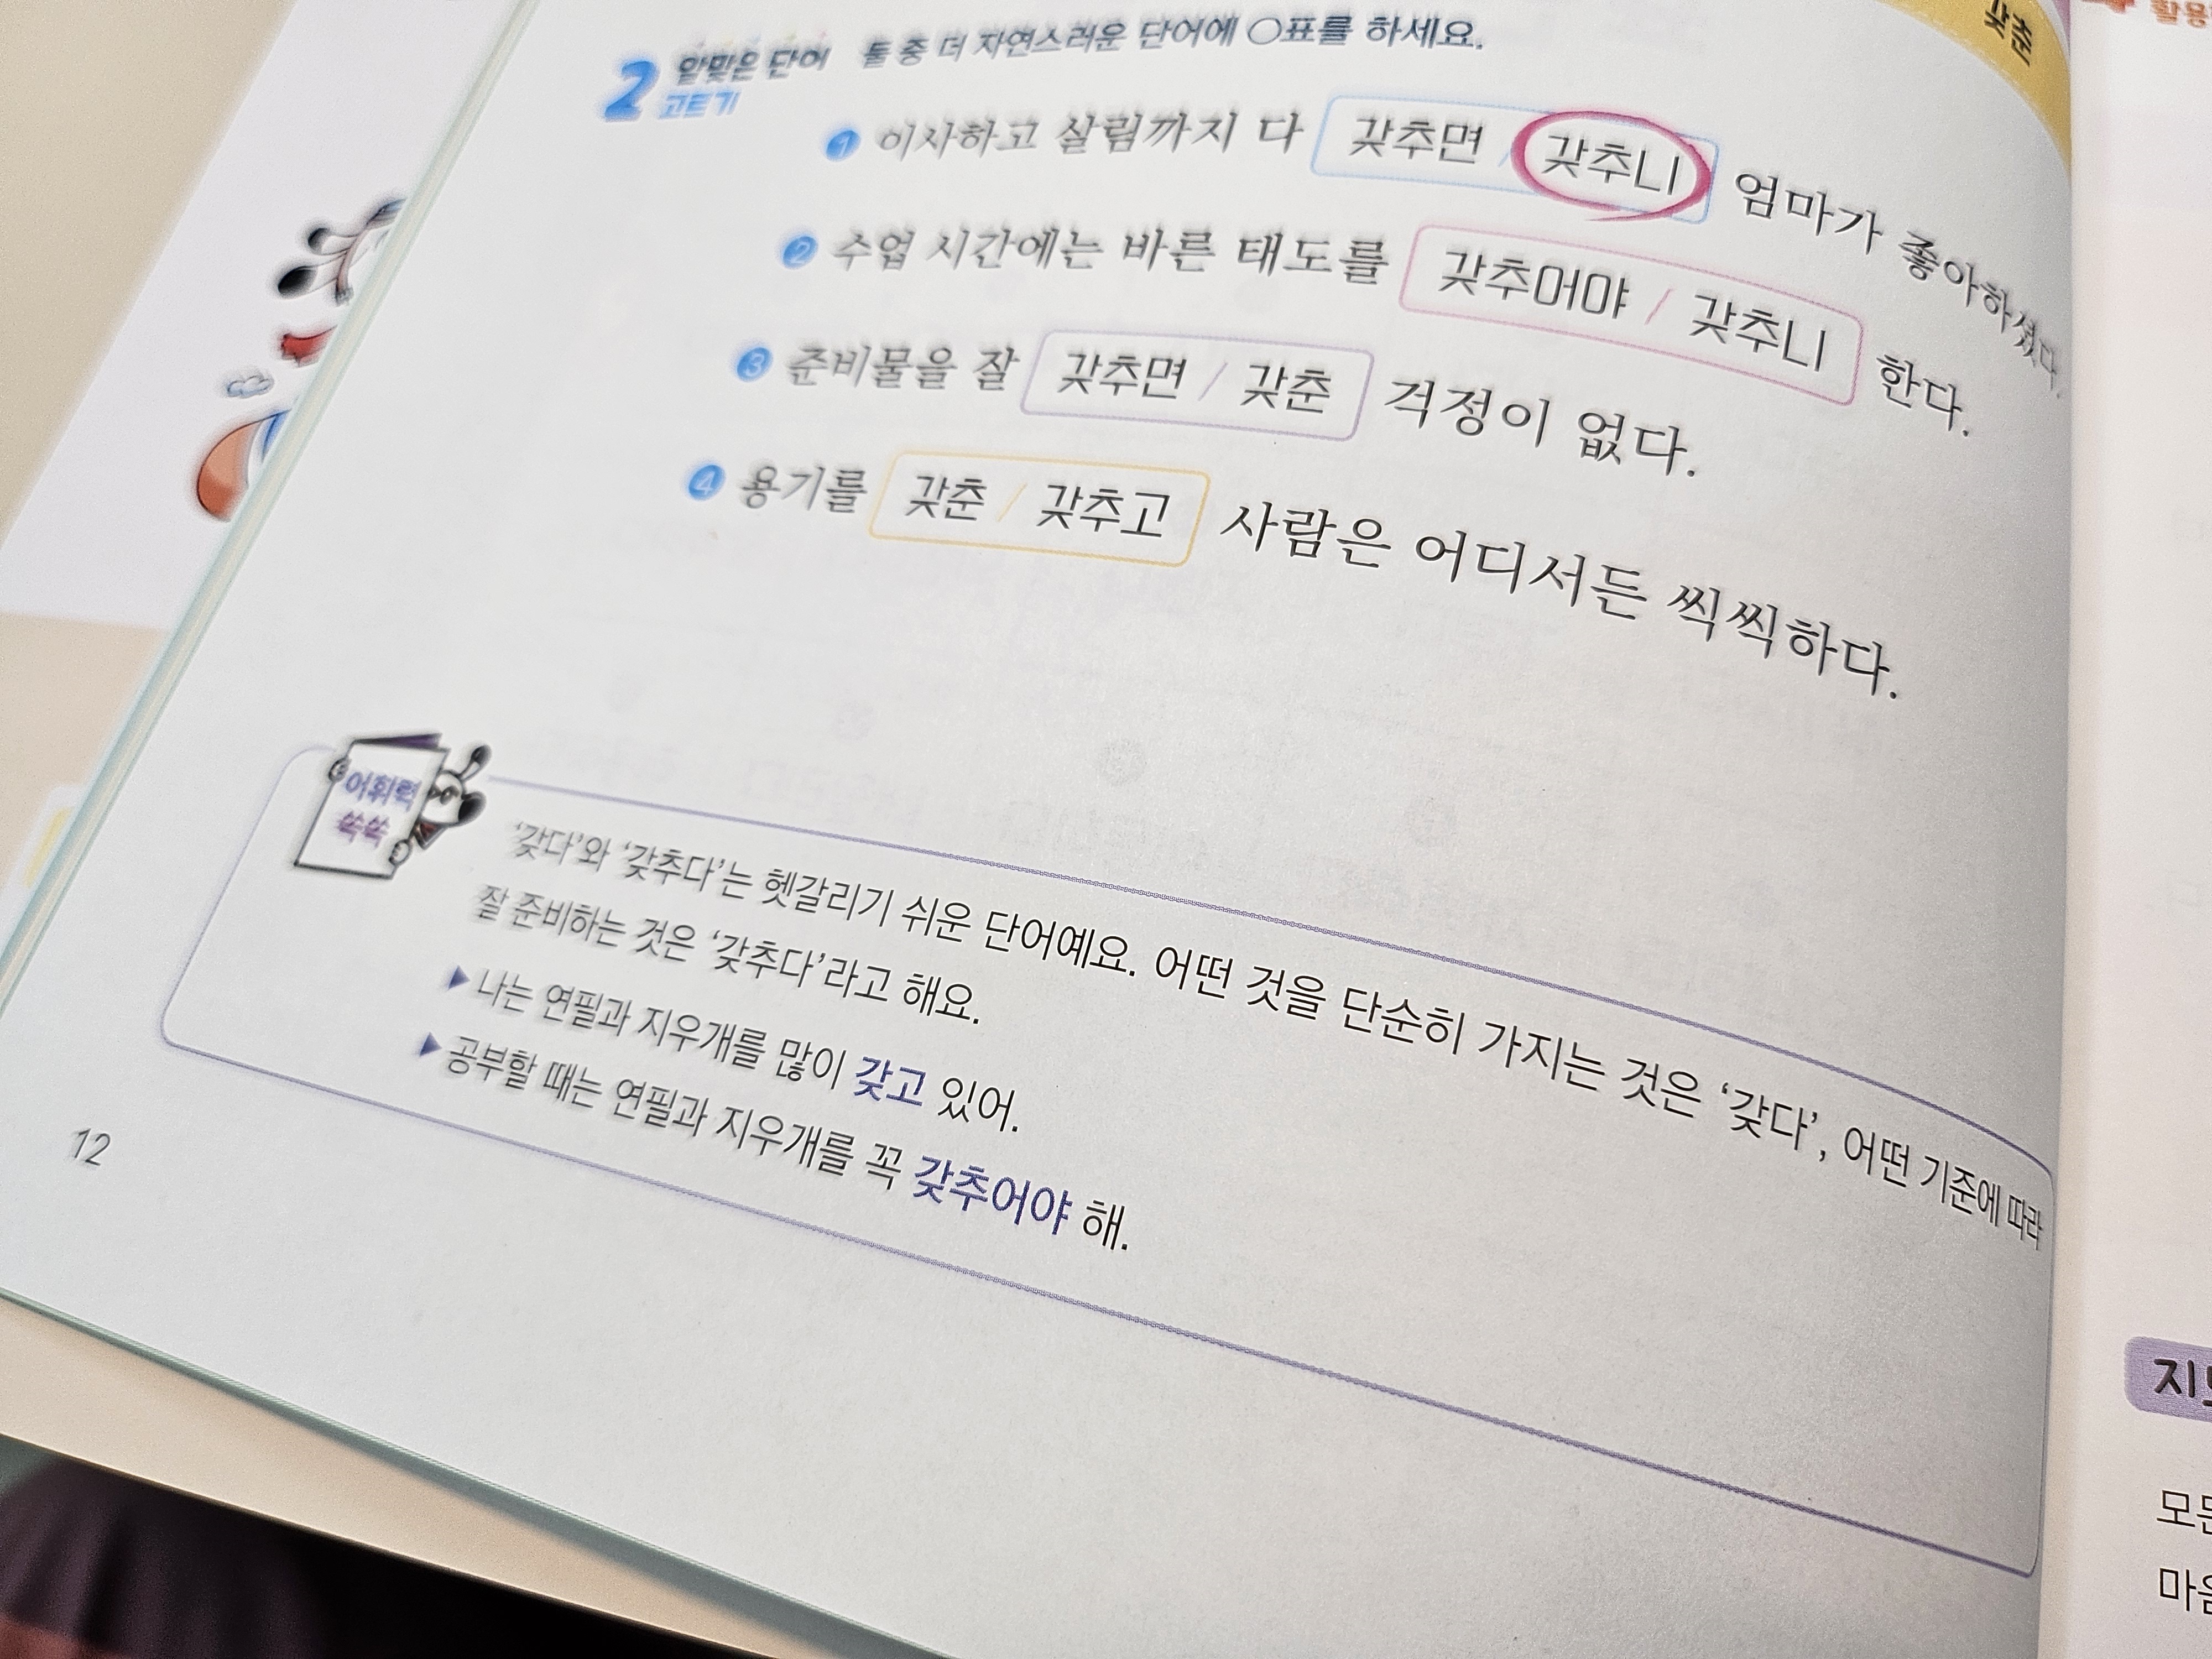 갖춘
2 알맞은 단어 고르기 둘 중 더 자연스러운 단어에 ○표를 하세요.
1 이사하고 살림까지 다 갖추면 / 갖추니 엄마가 좋아하셨다.
2 수업 시간에는 바른 태도를 갖추어야 / 갖추니 한다.
3 준비물을 잘 갖추면 / 갖춘 걱정이 없다.
4 용기를 갖춘 / 갖추고 사람은 어디서든 씩씩하다.
어휘력
쑥쑥
‘갖다’와 ‘갖추다’는 헷갈리기 쉬운 단어예요. 어떤 것을 단순히 가지는 것은 ‘갖다’, 어떤 기준에 따라
잘 준비하는 것은 ‘갖추다’라고 해요.
▶ 나는 연필과 지우개를 많이 갖고 있어.
▶ 공부할 때는 연필과 지우개를 꼭 갖추어야 해.
12
활용
모든
마음